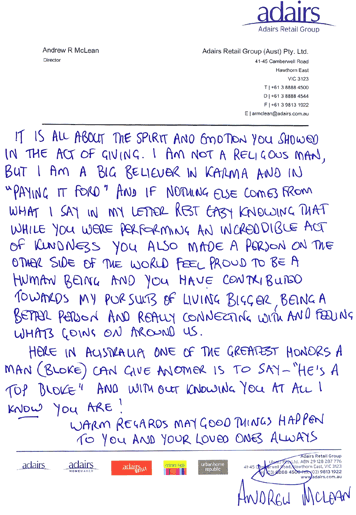 adairs
Adairs Retail Group
Andrew R McLean
Director
Adairs Retail Group (Aust) Pty. Ltd.
41-45 Camberwell Road
Hawthorn East
VIC 3123
T | +61 3 8888 4500
D | +61 3 8888 4544
F | +61 3 9813 1922
E | armclean@adairs.com.au
IT IS ALL ABOUT THE SPIRIT AND EMOTION YOU SHOWED
IN THE ACT OF GIVING. I AM NOT A RELIGOUS MAN,
BUT I AM A BIG BELIEVER IN KARMA AND IN
"PAYING IT FORD" AND IF NOTHING ELSE COMES FROM
WHAT I SAY IN MY LETTER REST EASY KNOWING THAT
WHILE YOU WERE PERFORMING AN INCREDDIBLE ACT
OF KINDNESS YOU ALSO MADE A PERSON ON THE
OTHER SIDE OF THE WORLD FEEL PROUD TO BE A
HUMAN BEING AND YOU HAVE CONTRIBUTED
TOWARDS MY PURSUITS OF LIVING BIGGER, BEING A
BETTER PERSON AND REALLY CONNECTING WITH AND FEELING
WHATS GOING ON AROUND US.
HERE IN AUSTRALIA ONE OF THE GREATEST HONORS A
MAN (BLOKE) CAN GIVE ANOTHER IS TO SAY – "HE'S A
TOP BLOKE" AND WITH OUT KNOWING YOU AT ALL I
KNOW YOU ARE!
WARM REGARDS MAY GOOD THINGS HAPPEN
TO YOU AND YOUR LOVED ONES ALWAYS
adairs
adairs
adairs
urban home
republic
Adairs Retail Group
ABN 29 128 287 776
Road, Hawthorn East, VIC 3123
(03) 9813 1922
www.adairs.com.au
ANDREW MCLEAN